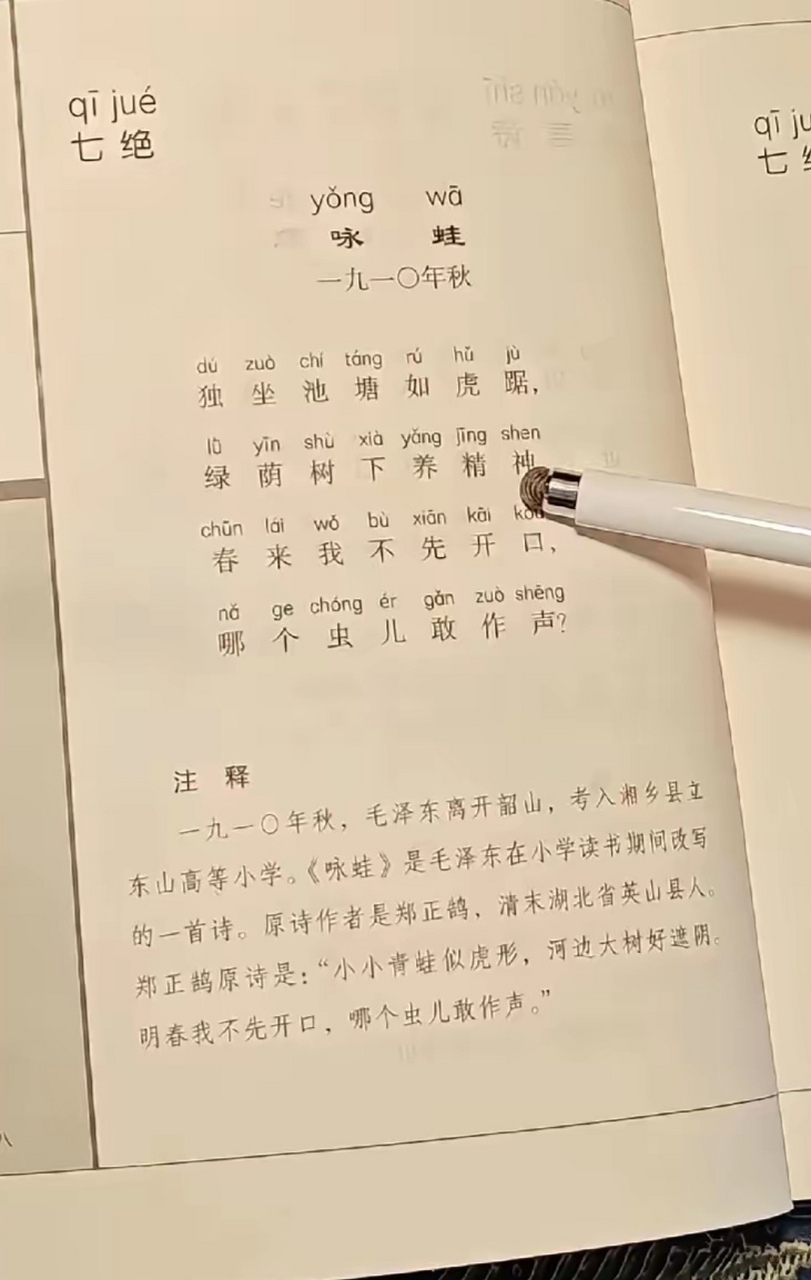 qī jué
七绝
yǒng wā
咏 蛙
一九一〇年秋
dú zuò chí táng rú hǔ jù
独坐池塘如虎踞，
lǜ yīn shù xià yǎng jīng shen
绿荫树下养精神
chūn lái wǒ bù xiān kāi kǒu
春来我不先开口，
nǎ ge chóng ér gǎn zuò shēng
哪个虫儿敢作声？
注 释
一九一〇年秋，毛泽东离开韶山，考入湘乡县立
东山高等小学。《咏蛙》是毛泽东在小学读书期间改写
的一首诗。原诗作者是郑正鹄，清末湖北省英山县人。
郑正鹄原诗是：“小小青蛙似虎形，河边大树好遮阴。
明春我不先开口，哪个虫儿敢作声。”
qī
七
八